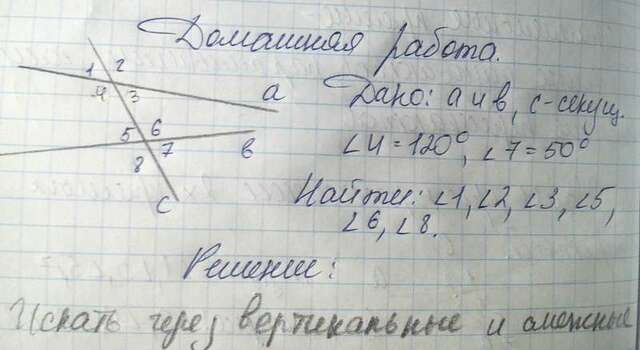 Домашняя работа.
1 2
4 3
a
5 6
8 7
в
с
Дано: а и в, с-секущ.
∠4=120°, ∠7=50°
Найти: ∠1, ∠2, ∠3, ∠5,
∠6, ∠8.
Решение:
Искать через вертикальные и смежные